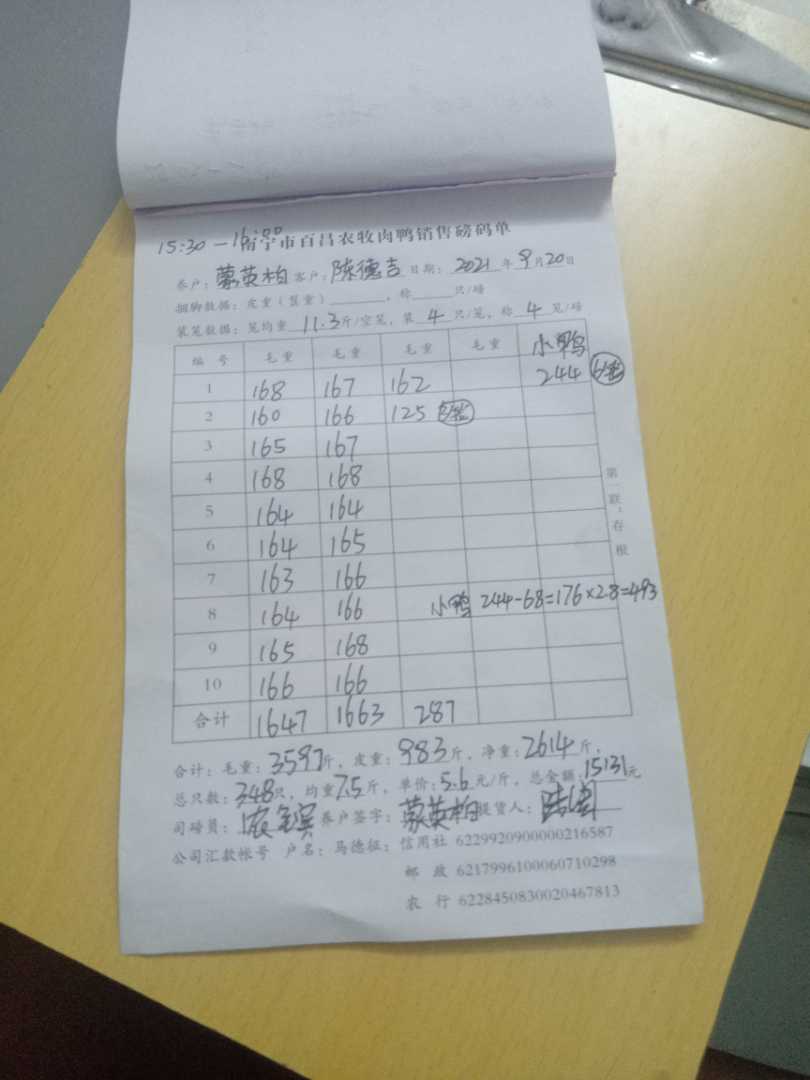 15:30—16:00
南宁市百昌农牧肉鸭销售磅码单
养户：蒙英柏 客户：陈德吉 日期：2021年9月20日
捆脚数据：皮重（筐重）______，称____只/磅
装笼数据：笼均重 11.3斤/空笼，装 4 只/笼，称 4 笼/磅
编号 毛重 毛重 毛重 毛重 小鸭
1 168 167 162 244 6/笼
2 160 166 125 3/笼
3 165 167
4 168 168
5 164 164
6 164 165
7 163 166
8 164 166 小鸭 244-68=176×2.8=493
9 165 168
10 166 166
合计 1647 1663 287
合计：毛重：3597斤，皮重：983斤，净重：2614斤，
总只数：348只，均重7.5斤，单价：5.6元/斤，总金额：15131元
司磅员： 养户签字：蒙英柏 提货人：
公司汇款帐号 户名：马德征：信用社 6229920900000216587
邮政 6217996100060710298
农行 6228450830020467813
第一联：存根